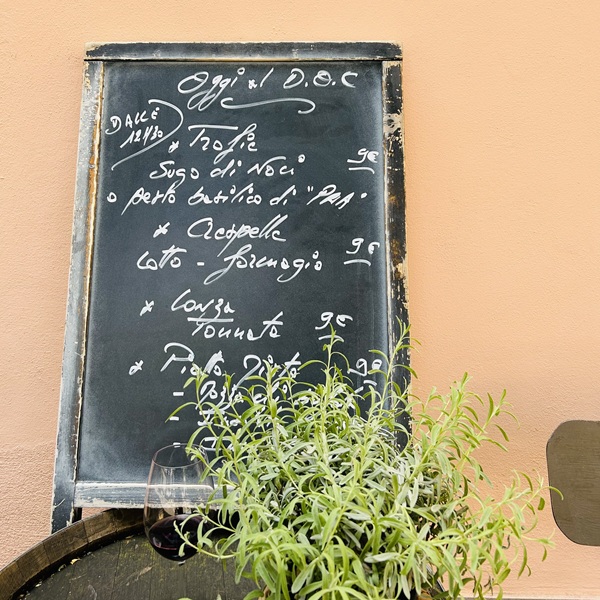 Oggi al D.O.C
DALLE
12:30
* Trofie
Sugo di Noci 9€
o pesto basilico di "PRA"
* Crespelle
Cotto - formagio 9€
* Lonza
Tonnata 9€
* Piatto Misto 9€